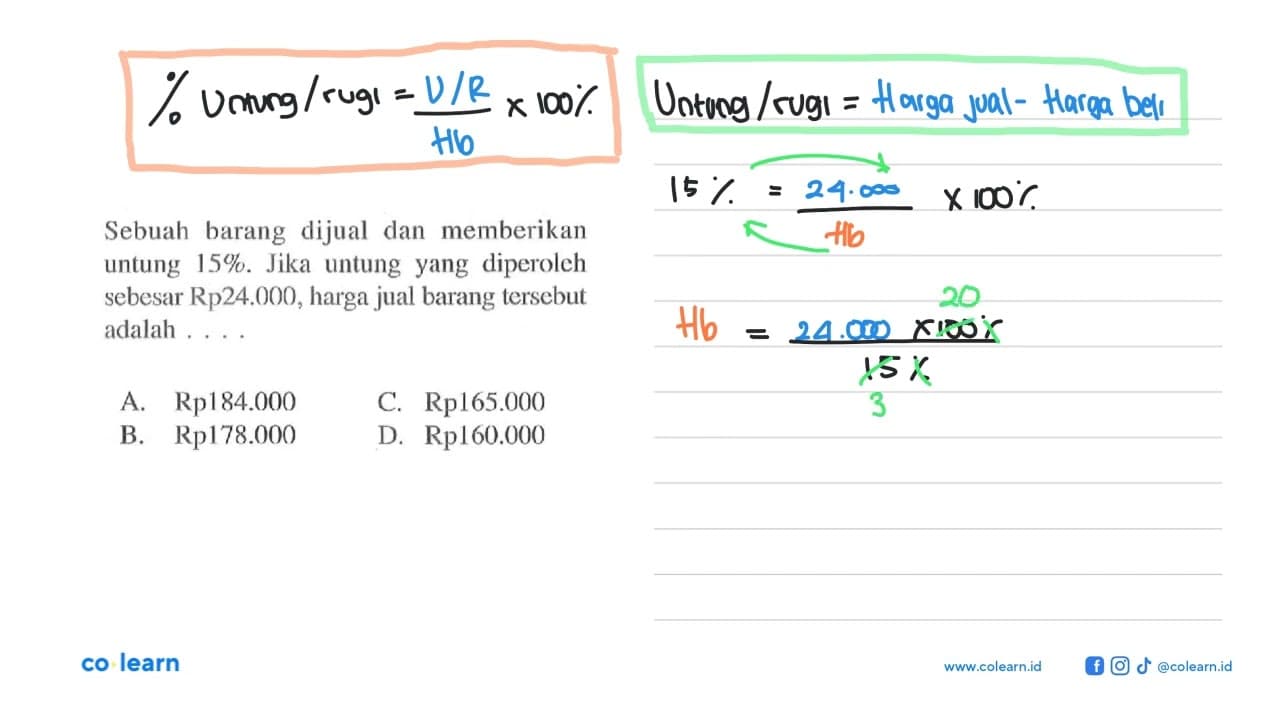 % Untung/rugi = U/R / Hb x 100%
Untung/rugi = Harga jual - Harga beli
Sebuah barang dijual dan memberikan
untung 15%. Jika untung yang diperoleh
sebesar Rp24.000, harga jual barang tersebut
adalah . . . .
A. Rp184.000 C. Rp165.000
B. Rp178.000 D. Rp160.000
15% = 24.000 / Hb x 100%
20
Hb = 24.000 x 100%
15%
3
co learn
www.colearn.id @colearn.id